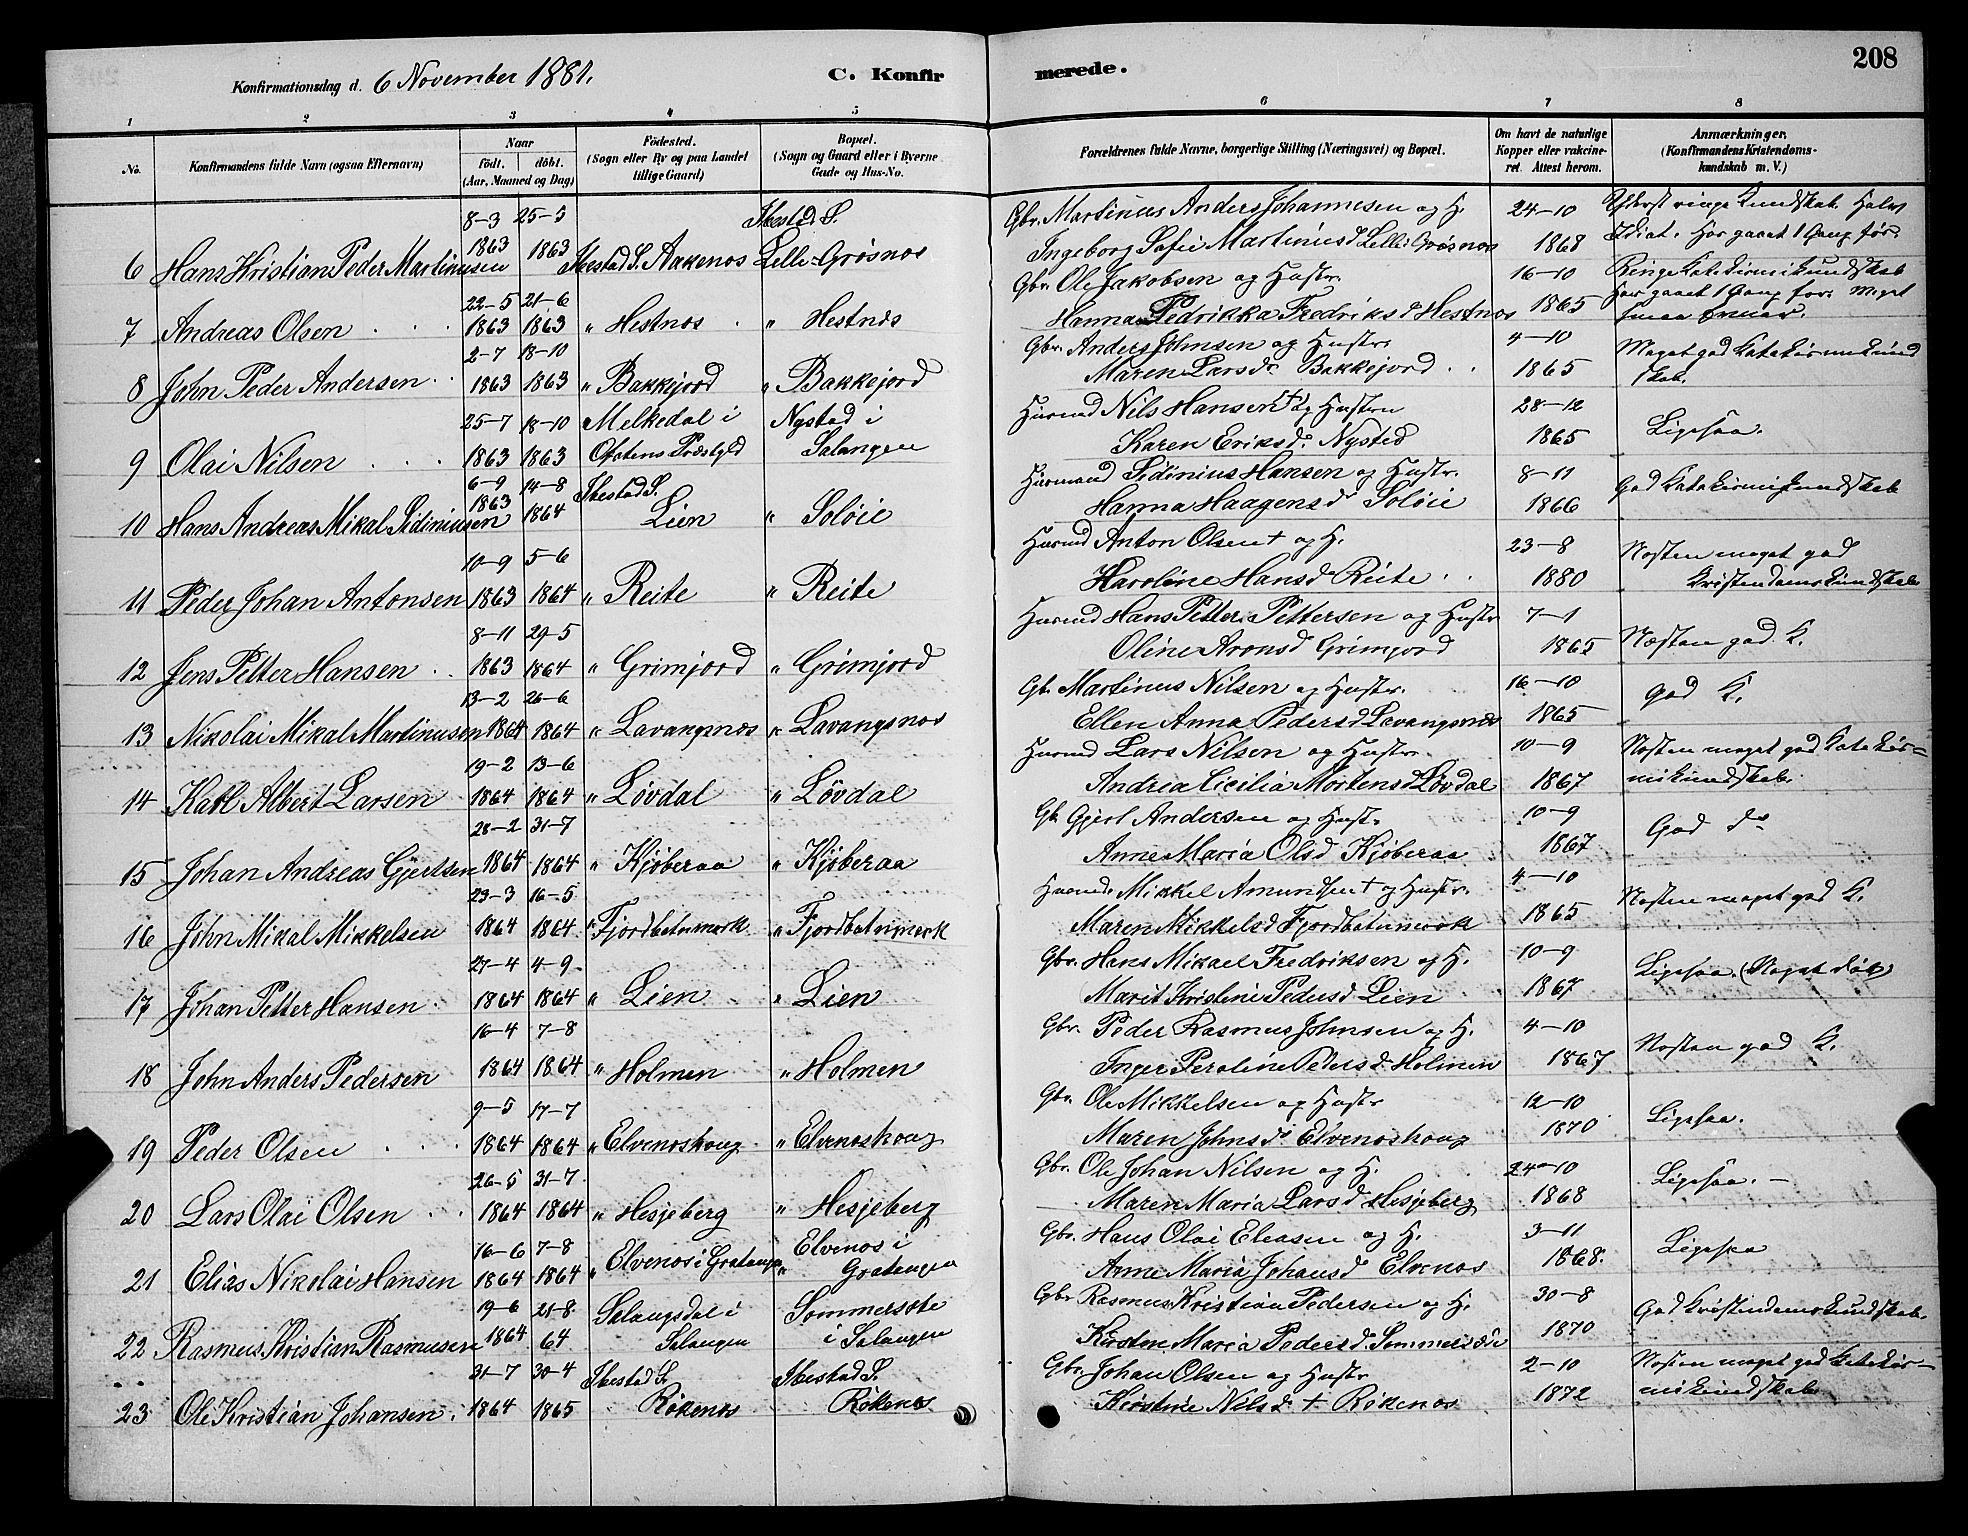 208
Konfirmationsdag d. 6 November 1881. C. Konfirmerede.
1 2 3 4 5 6 7 8
No. Konfirmandens fulde Navn (ogsaa Efternavn) Naar födt. döbt. (Aar, Maaned og Dag) Födested. (Sogn eller By og paa Landet tillige Gaard) Bopæl. (Sogn og Gaard eller i Byerne Gade og Hus-No. Forældrenes fulde Navne, borgerlige Stilling (Næringsvei) og Bopæl. Om havt de naturlige Kopper eller vakcineret. Attest herom. Anmærkninger. (Konfirmandens Kristendomskundskab m. V.)
8-3 25-5 Ibestad S. Gbr. Martinus Anders Johannesen og H. 24-10 Yderst ringe Kundskab. Halv
6 Hans Kristian Peder Martinusen 1863 1863 Ibestad S. Aakenes Lille-Grøsnes Ingeborg Sofie Martinusd Lille Grøsnes 1868 Idiot. Har gaaet 1 Gang før.
22-5 21-6 Gbr. Ole Jakobsen og Hustr. 16-10 Ringe Katekismikundskab
7 Andreas Olsen 1863 1863 " Hestnes " Hestnes Hanna Fedrikka Fredriksd Hestnes 1865 Har gaaet 1 Gang før. Meget smaa Evner.
2-7 18-10 Gbr. Anders Johnsen og Hustr. 4-10 Meget god Katekismikund
8 John Peder Andersen 1863 1863 " Bakkejord " Bakkejord Maren Larsdr Bakkejord 1865 skab.
25-7 18-10 Melkedal i Nystad i Husmd Nils Hansen + og Hustru 28-12
9 Olai Nilsen 1863 1863 Ofotens Præstgjld Salangen Karen Eriksdr Nysted 1865 Ligesaa.
6-9 14-8 Ibestad S. Husmand Sidinius Hansen og Hustr. 8-11 God Katekismikundskab
10 Hans Andreas Mikal Sidiniusen 1863 1864 Lien " Soløie Hanna Haagensd Soløie 1866
10-9 5-6 Husmd Anton Olsen + og H. 23-8 Næsten meget god
11 Peder Johan Antonsen 1863 1864 " Reite " Reite Haroline Hansd Reite 1880 Kristendomskundskab
8-11 29-5 Husmd Hans Petter Pettersen og Hustr 7-1
12 Jens Petter Hansen 1863 1864 " Grimjord " Grimjord Oline Aronsd Grimjord 1865 Næsten god K.
13-2 26-6 Gb. Martinus Nilsen og Hustr. 16-10 God K.
13 Nikolai Mikal Martinusen 1864 1864 " Lavangsnæs " Lavangsnes Ellen Anna Pedersd Lavangsnæs 1865
19-2 13-6 Husmd Lars Nilsen og Hustr. 10-9 Næsten meget god Katekis=
14 Karl Albert Larsen 1864 1864 " Løvdal " Løvdal Andrea Cicilia Mortensd Løvdal 1867 mikundskab.
28-2 31-7 Gb. Gjert Andersen og Hustr. 10-9 God do
15 Johan Andreas Gjertsen 1864 1864 " Kjøberaa " Kjøberaa Anne Maria Olsd Kjøberaa 1867
23-3 16-5 Husmd. Mikkel Amundsen + og Hustr. 4-10 Næsten meget god K.
16 John Mikal Mikkelsen 1864 1864 " Fjordbotnmark " Fjordbotnmark Maren Mikkelsd Fjordbotnmark 1865
27-4 4-9 Gbr. Hans Mikael Fredriksen og H. 10-9
17 Johan Petter Hansen 1864 1864 " Lien " Lien Marit Kristine Pedersd Lien 1867 Ligesaa. (Meget døv)
16-4 7-8 Gbr. Peder Rasmus Johnsen og H. 4-10
18 John Anders Pedersen 1864 1864 " Holmen " Holmen Inger Peroline Pedersd Holmen 1867 Næsten god K.
9-5 17-7 Gbr. Ole Mikkelsen og Hustr 12-10
19 Peder Olsen 1864 1864 " Elveneshaug " Elveneshaug Maren Johnsd Elveneshaug 1870 Ligesaa.
26-5 31-7 Gbr. Ole Johan Nilsen og H. 24-10
20 Lars Olai Olsen 1864 1864 " Hesjeberg " Hesjeberg Maren Maria Larsd Hesjeberg 1868 Ligesaa. -
16-6 7-8 Elvenes i Gbr. Hans Olai Eleasen og H. 3-11
21 Elias Nikolai Hansen 1864 1864 " Elvenes i Gratangen " Gratangen Anne Maria Johansd Elvenes 1868. Ligesaa
19-6 21-8 Salangsdal i Sommersæte Gbr Rasmus Kristian Pedersen og H. 30-8 God Kristendomskundskab.
22 Rasmus Kristian Rasmusen 1864 64 Salangen i Salangen Kirsten Maria Pedersd. Sommersæte 1870
31-7 30-4 Ibestad S. Ibestad S. Gbr. Johan Olsen og Hustr 2-10 Næsten meget god Katekis-
23 Ole Kristian Johansen. 1864 1865 Røkenes Røkenes Kirstine Nilsd + Røkenes 1872 mikundskab